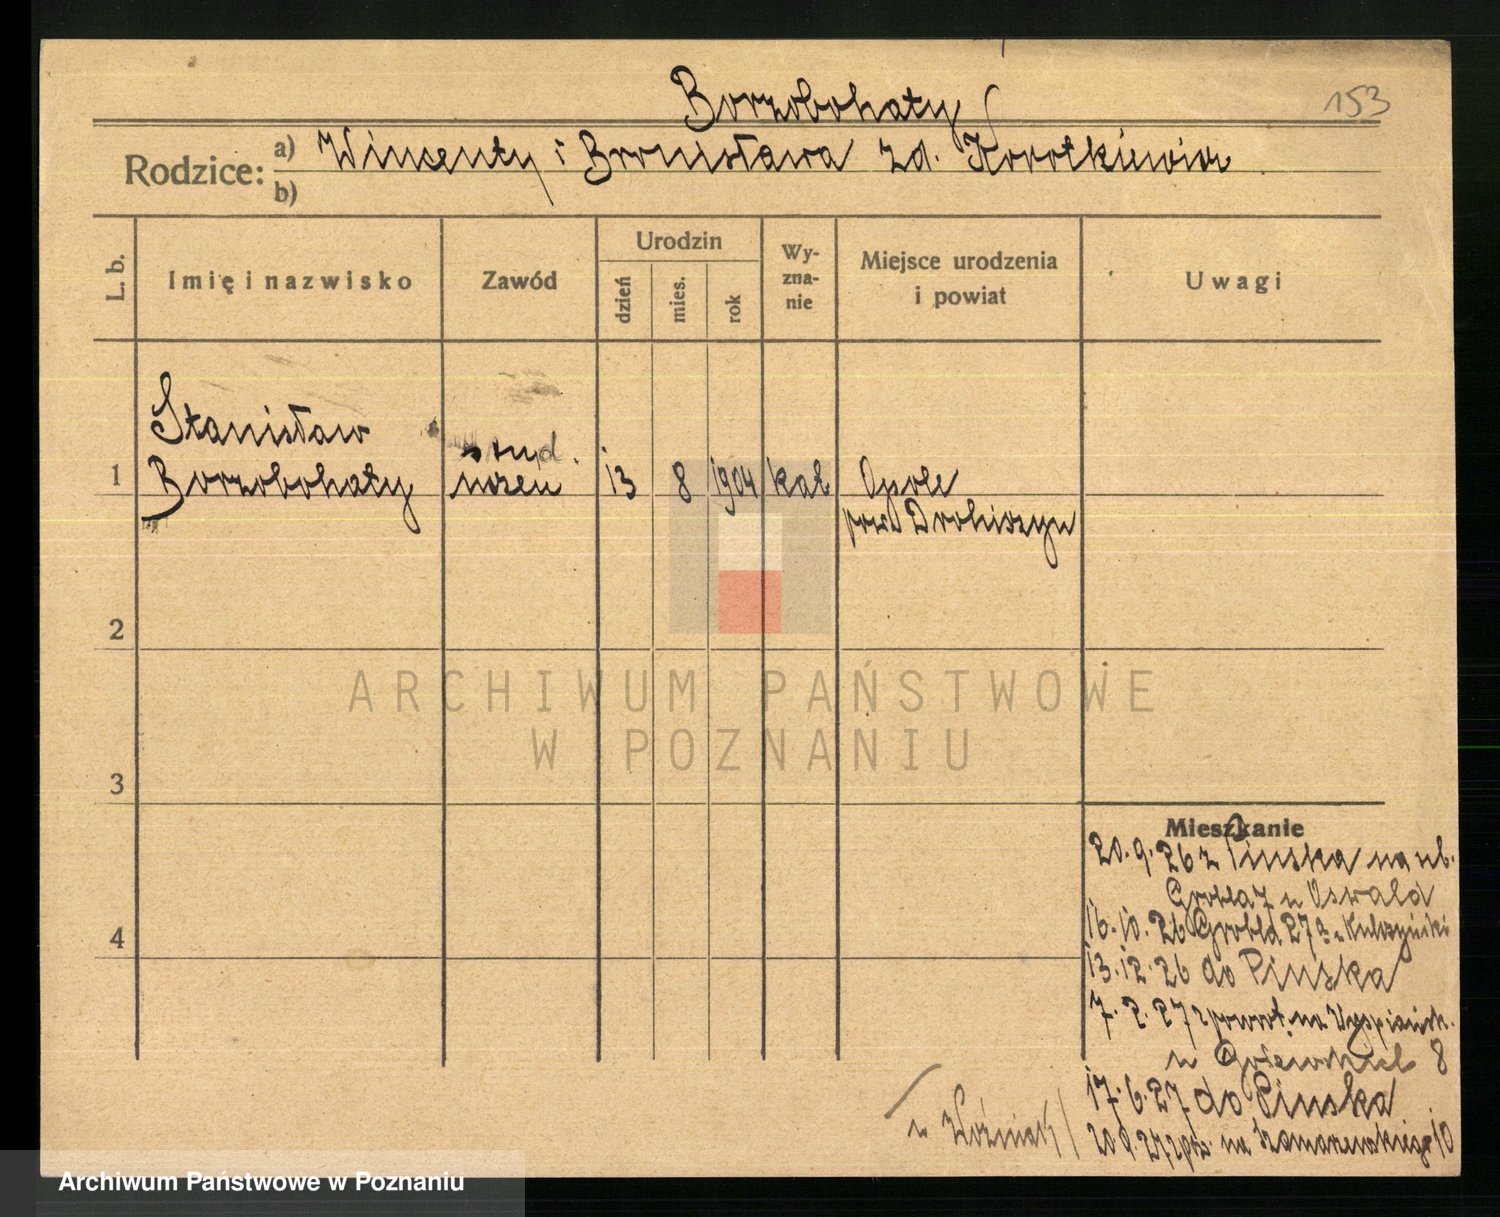 153
Borzobohaty
Rodzice: a) Wincenty i Bronisława zd. Korotkiewicz
b)
L. b. Imię i nazwisko Zawód Urodzin dzień mies. rok Wyzna-nie Miejsce urodzenia i powiat Uwagi
Stanisław stud.
1 Borzobohaty 13 8 1904 kat Opole
pow Drohiczyn
2
ARCHIWUM PAŃSTWOWE
W POZNANIU
3
Mieszkanie
20.9.26 z Pińska na
Grobla 7 u Oswald
16.10.26 Grobla 27a u Kulczyński
13.12.26 do Pińska
4
7.2.27 zpowrot. na Wyspiańsk.
u 8
17.6.27 do Pińska
20.9.27 zpr. na Szamarzewskiego 10
u Woźniak
Archiwum Państwowe w Poznaniu